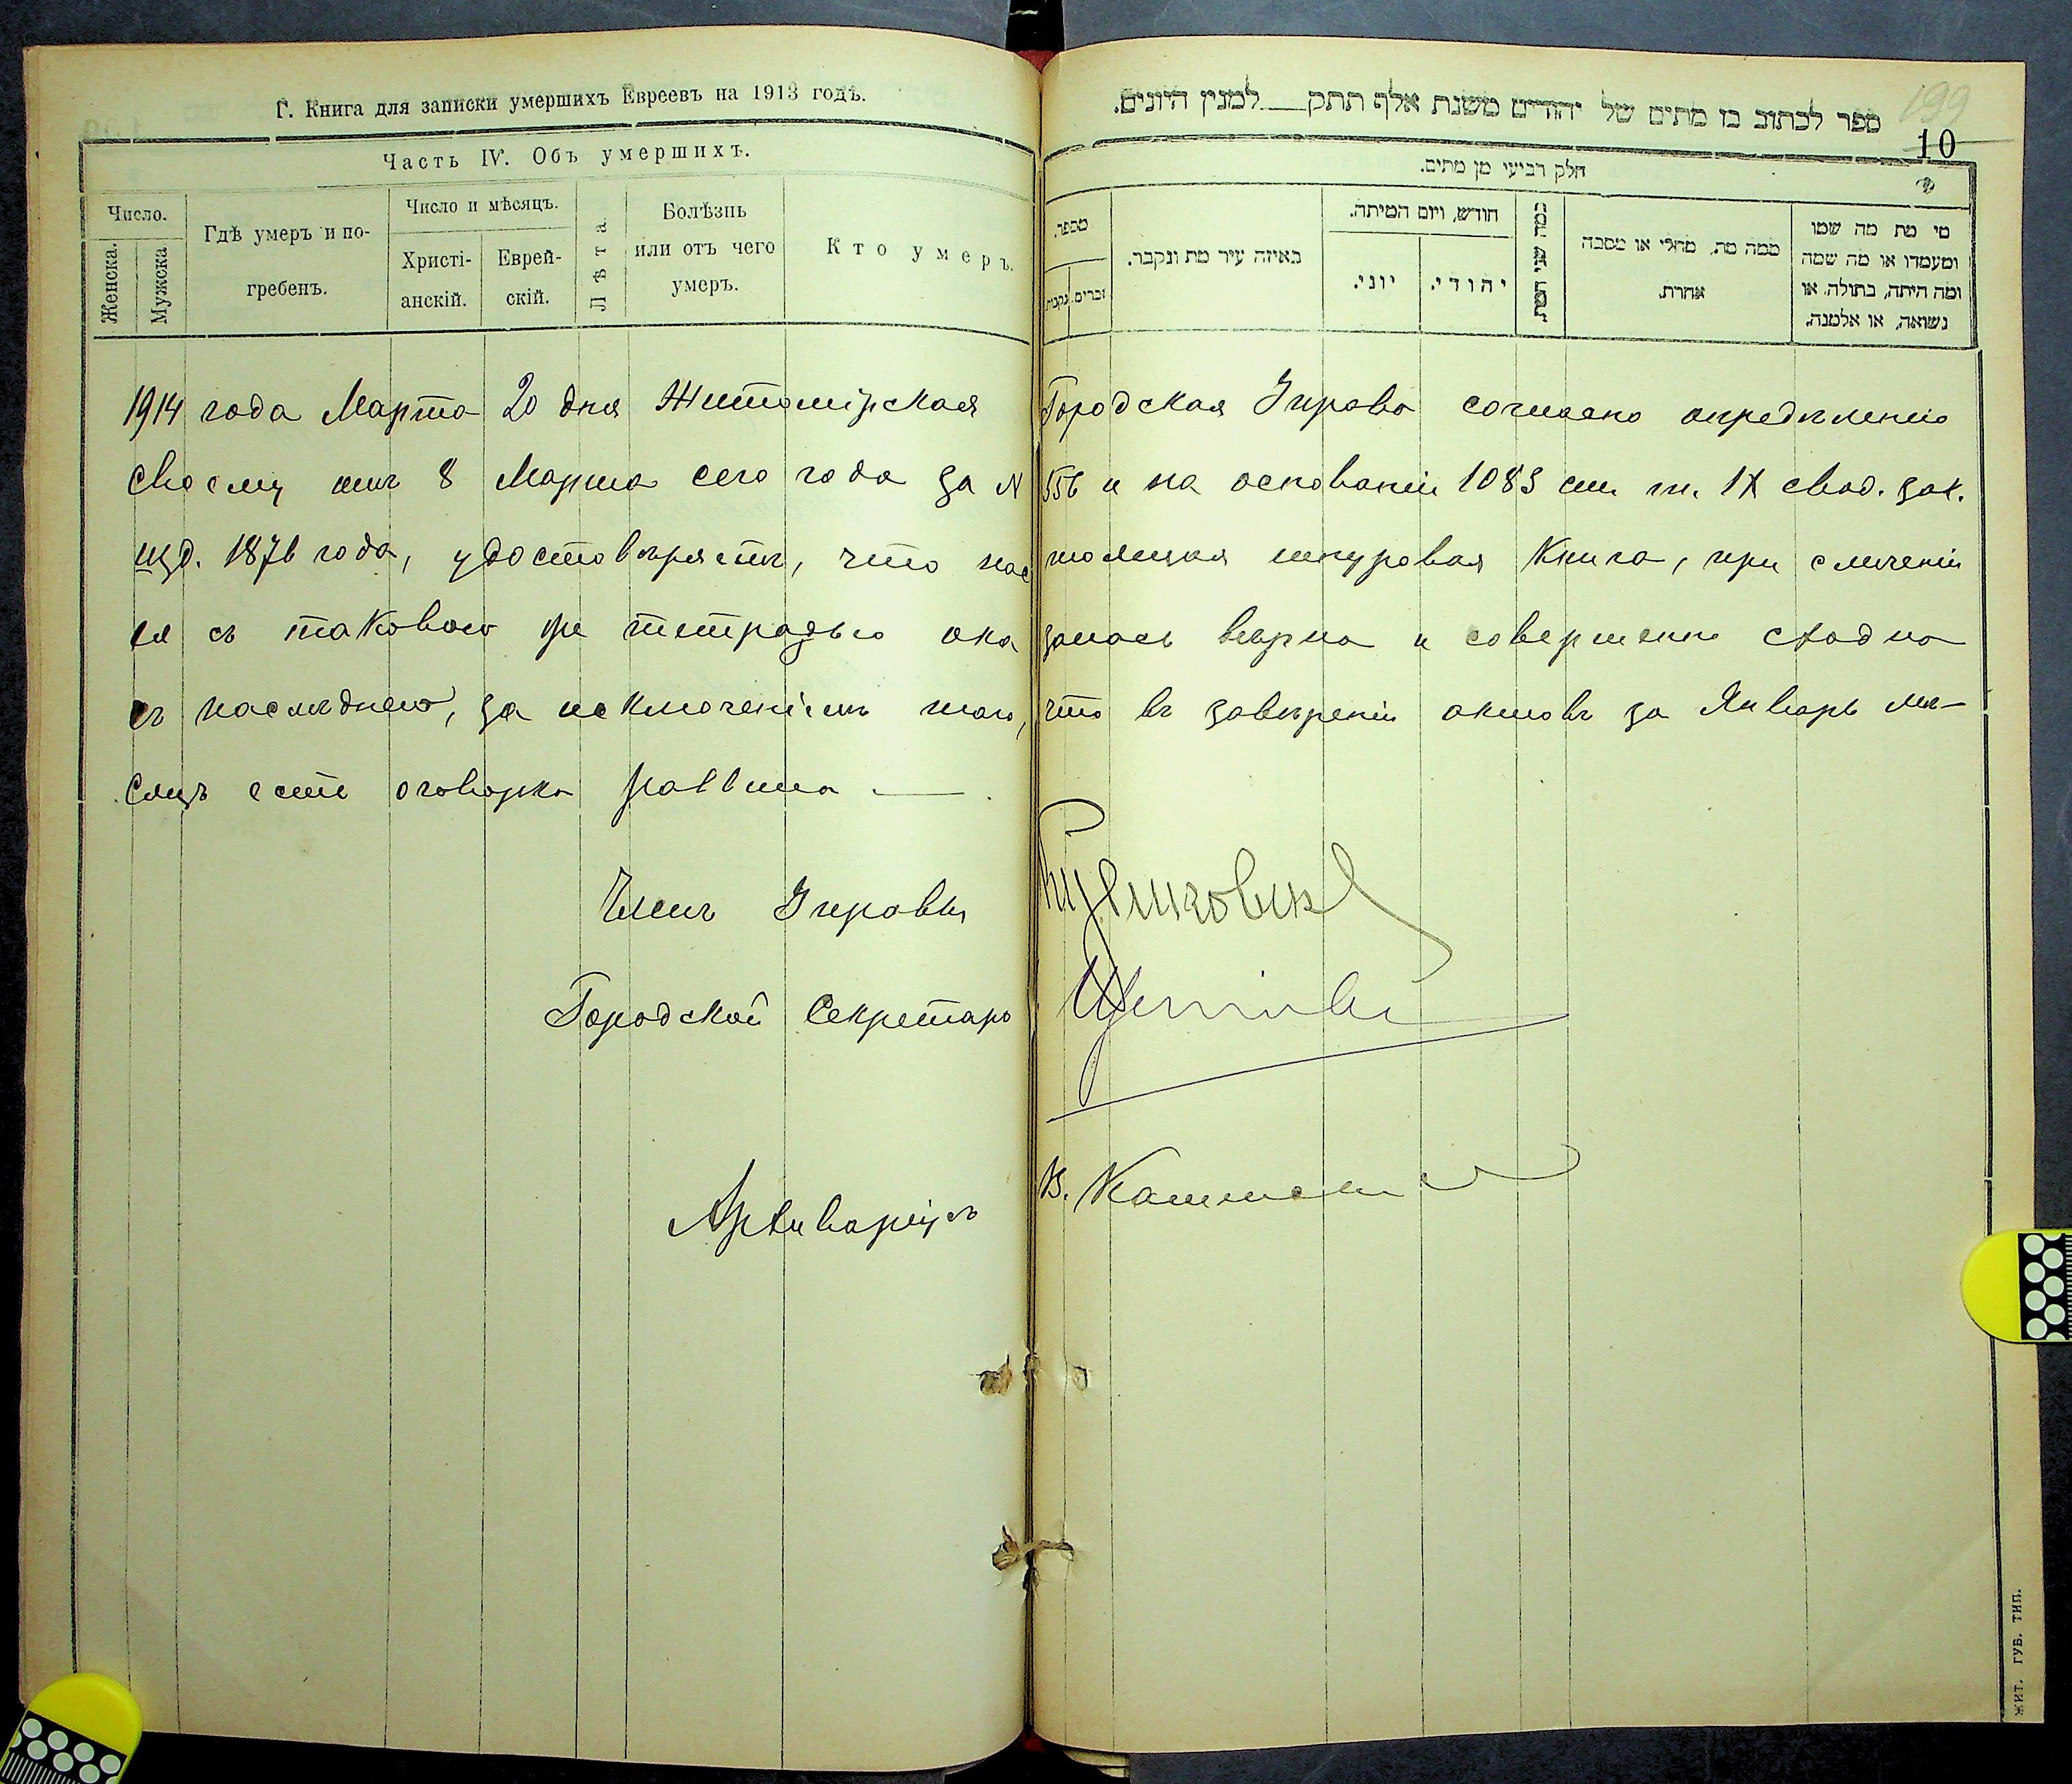 Г. Книга для записки умершихъ Евреевъ на 1913 годъ.
Часть IV. Объ умершихъ.
Число.
Женска.
Мужска
Гдѣ умеръ и по-
гребенъ.
Число и мѣсяцъ.
Христі-
анскій.
Еврей-
скій.
Лѣта.
Болѣзнь
или отъ чего
умеръ.
Кто умеръ.
199
ספר לכתוב בו מתים של יהודים משנת אלף תתק___למנין היונים.
10
חלק רביעי מן מתים.
מספר.
נקבות
זכרים.
באיזה עיר מת ונקבר.
חודש, ויום המיתה.
יוני.
יהודי.
כמה שני המת.
ממה מת, מחלי או מסבה
אחרת.
מי מת מה שמו
ומעמדו או מה שמה
ומה היתה, בתולה, או
נשואה, או אלמנה.
1914 года Марта 20 дня Житомірская Городская Управа согласно опредѣленію
своему отъ 8 Марта сего года за N 556 и на основаніи 1083 ст. т. IX свод. зак.
изд. 1876 года, удостовѣряетъ, что настоящая шнуровая книга, при сличеніи
ея съ таковою же тетрадью оказалась вѣрна и совершенно сходна
съ послѣднею, за исключеніемъ того, что въ завѣреніи актовъ за Январь мѣ-
сяцъ есть оговорка раввина —
Членъ Управы
Городской Секретарь
Архиваріусъ
В.
ЖИТ. ГУБ. ТИП.